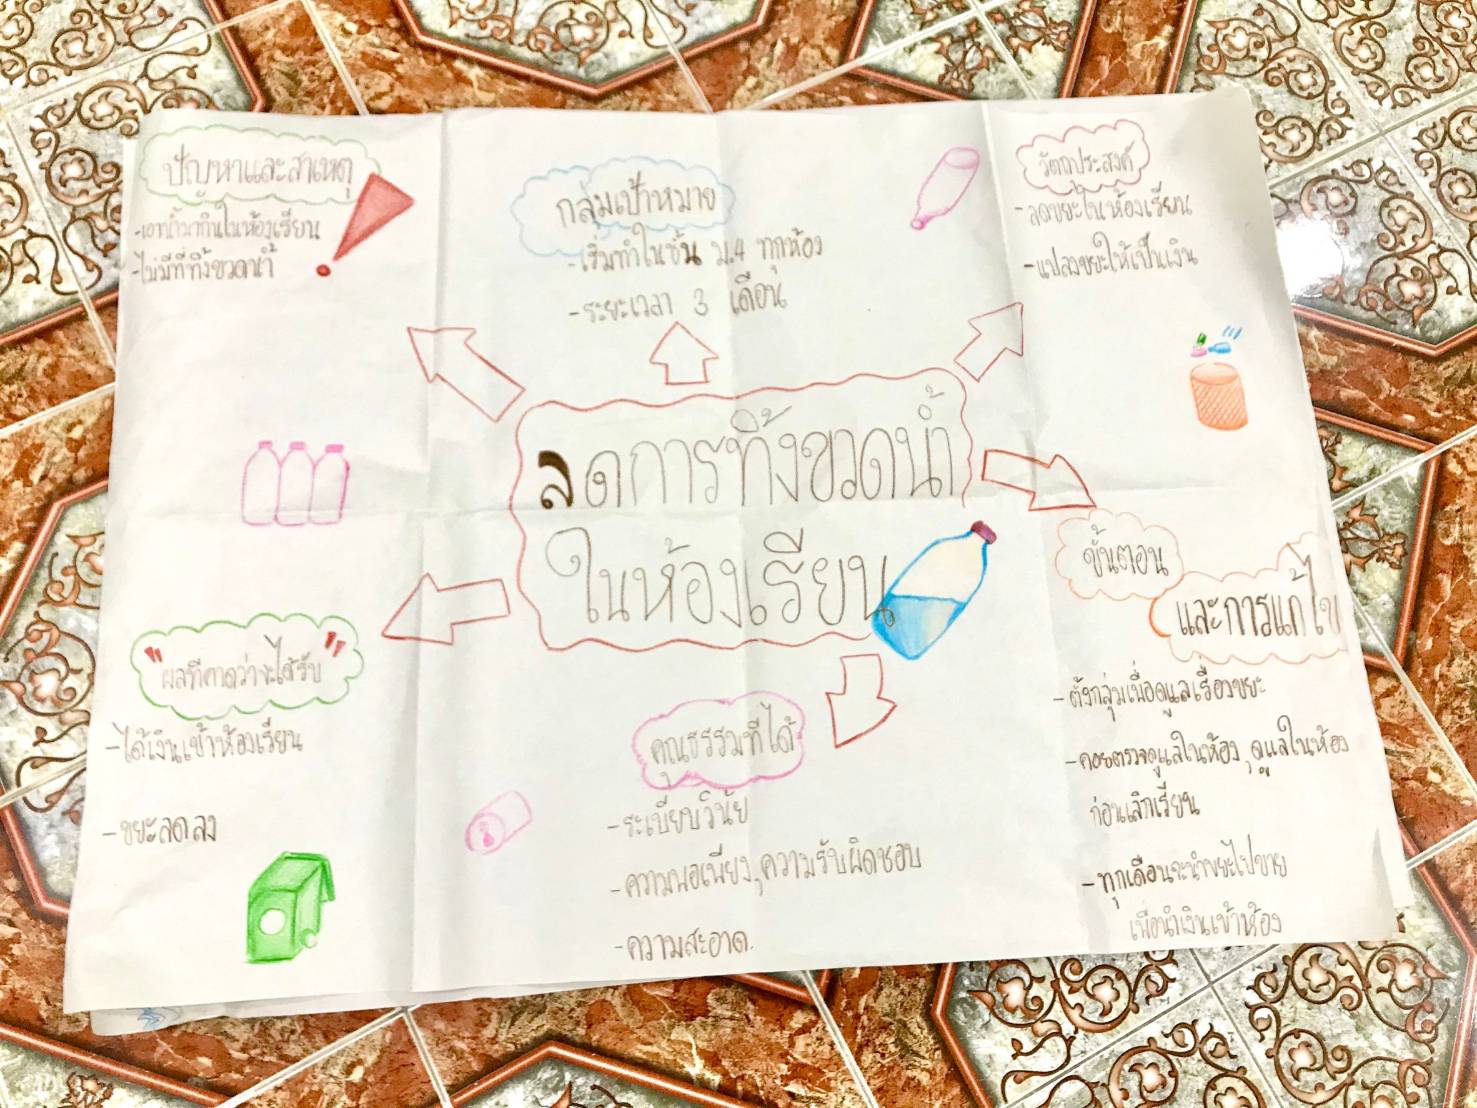 ปัญหาและสาเหตุ
-เอาน้ำมากินในห้องเรียน
-ไม่มีที่ทิ้งขวดน้ำ
กลุ่มเป้าหมาย
-เริ่มทำในชั้น ม.4 ทุกห้อง
-ระยะเวลา 3 เดือน
วัตถุประสงค์
-ลดขยะในห้องเรียน
-แปลงขยะให้เป็นเงิน
ลดการทิ้งขวดน้ำ
ในห้องเรียน
ขั้นตอน
และการแก้ไข
-ตั้งกลุ่มเพื่อดูแลเรื่องขยะ
-คอยตรวจดูแลในห้อง,ดูแลในห้อง
ก่อนเลิกเรียน
-ทุกเดือนจะนำขยะไปขาย
เพื่อนำเงินเข้าห้อง
"ผลที่คาดว่าจะได้รับ"
-ได้เงินเข้าห้องเรียน
-ขยะลดลง
คุณธรรมที่ได้
-ระเบียบวินัย
-ความพอเพียง,ความรับผิดชอบ
-ความสะอาด.